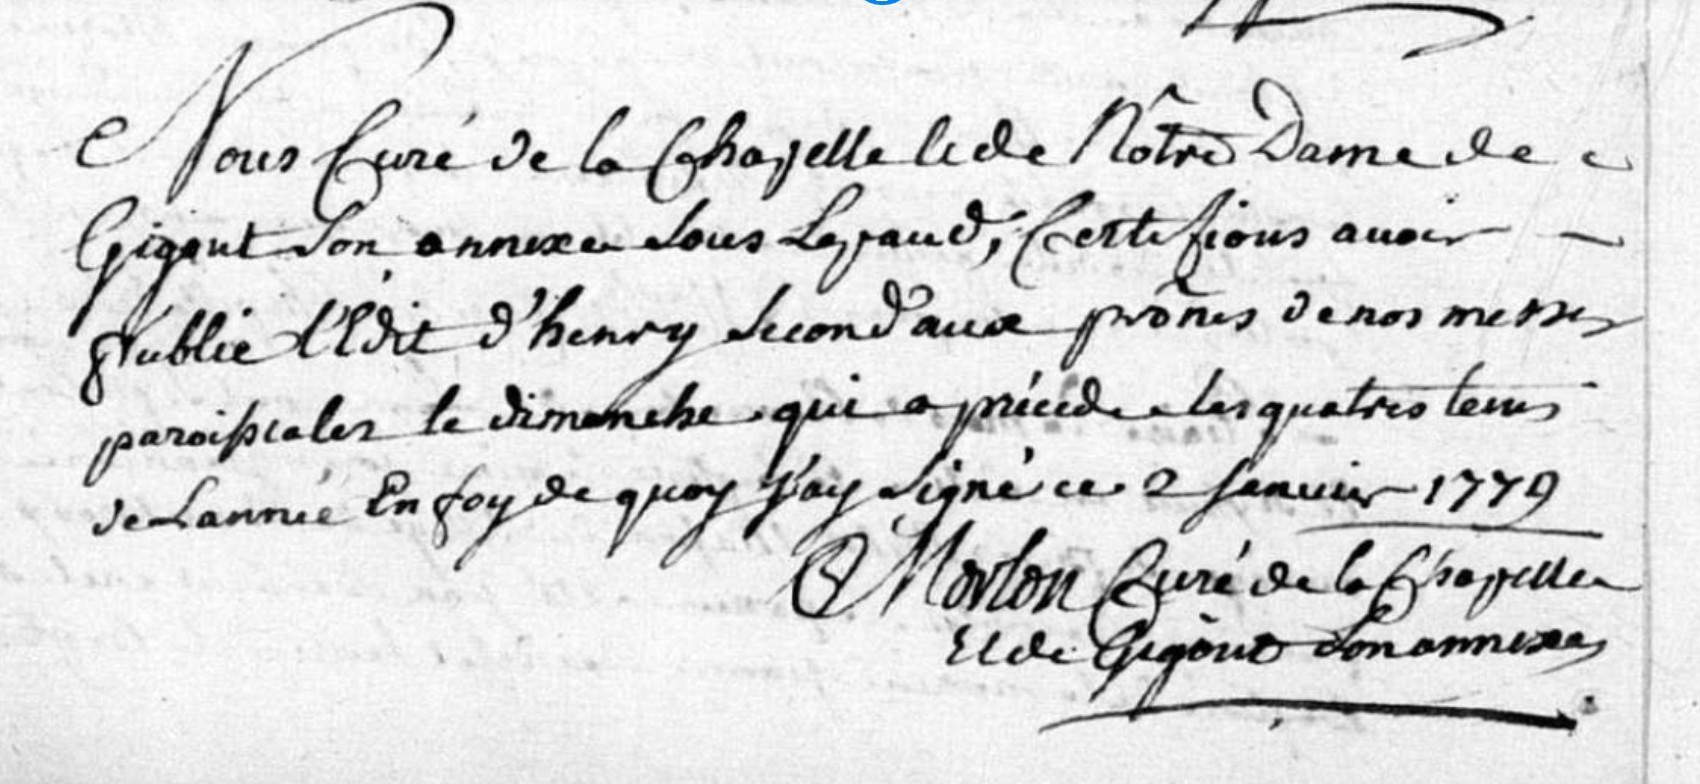 Nous Curé de la Chapelle et de Nôtre Dame de
Gigout son annexe sous Laraud, Certifions avoir
publié l'Edit d'henry second aux prônes de nos messes
paroissiales le dimanche qui a précédé les quatres tems
de Lannée En foy de quoy j'ay signé ce 2 janvier 1779
Morlon Curé de la Chapelle
Et de Gigout son annexe